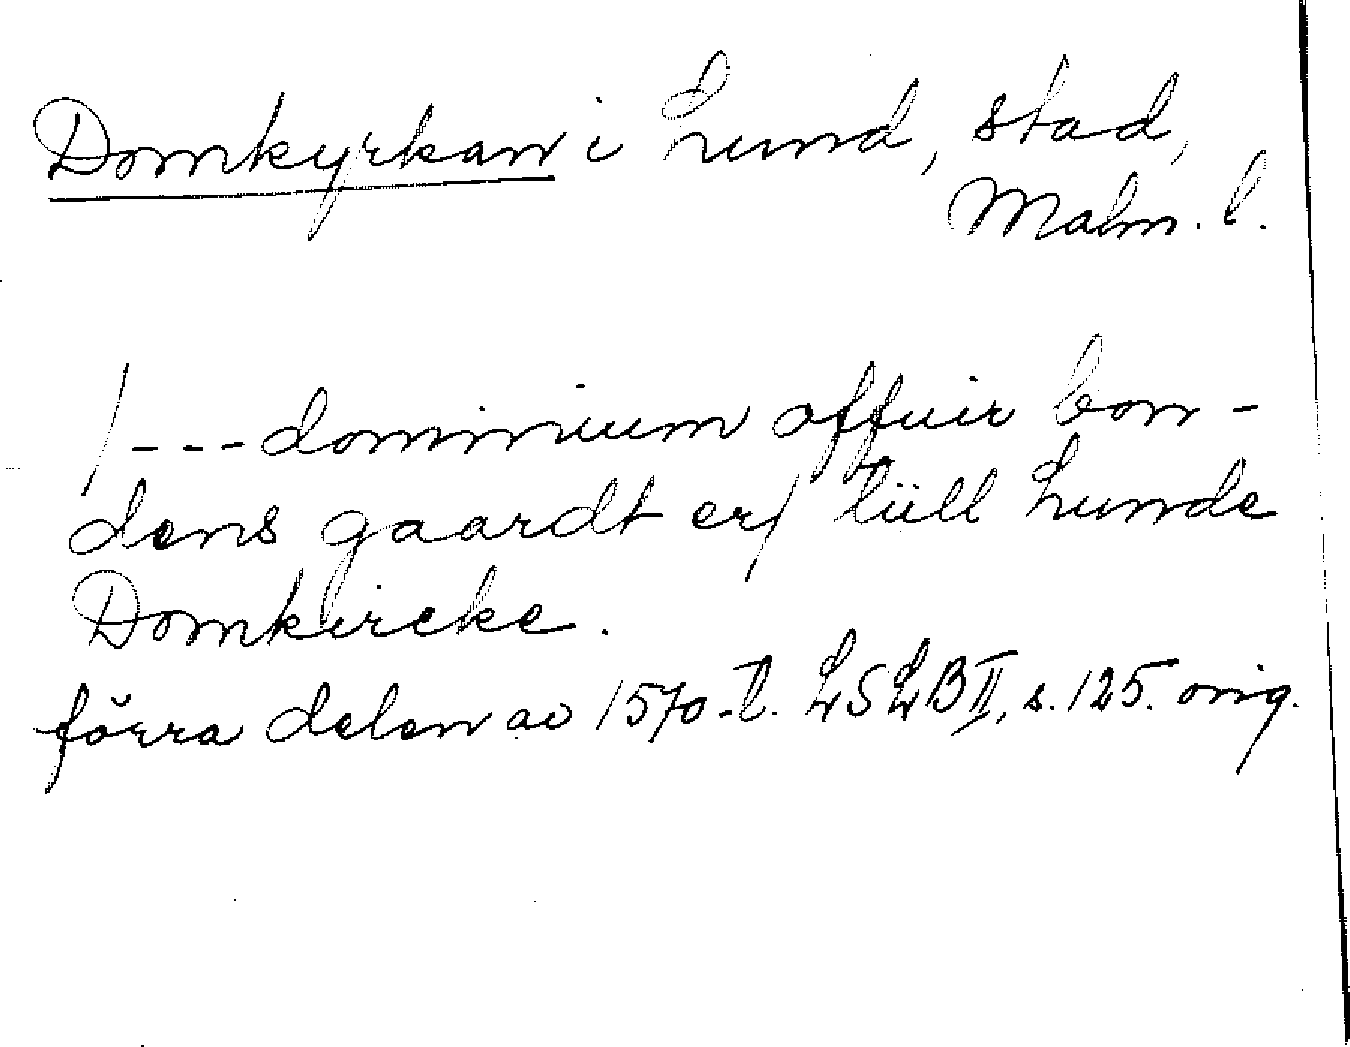 Domkyrkan i Lund, stad,
Malm. l.
/---dominium offuir bon-
dens gaardt er/ tüll Lunde
Domkircke.
förra delen av 1570-t. LSLB II, s. 125. orig.